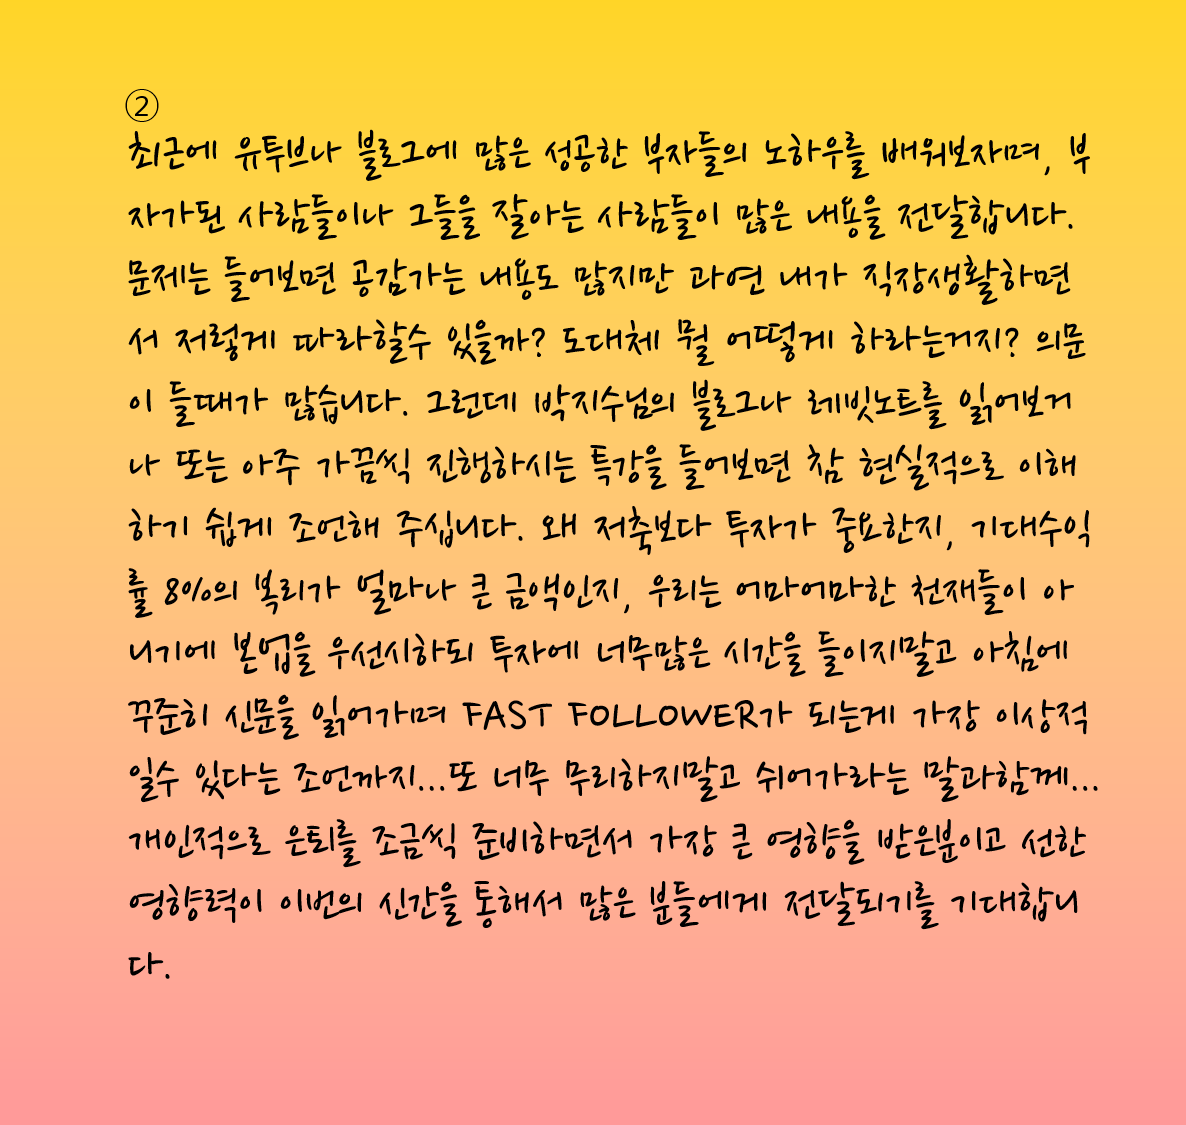 ②
최근에 유투브나 블로그에 많은 성공한 부자들의 노하우를 배워보자며, 부
자가된 사람들이나 그들을 잘아는 사람들이 많은 내용을 전달합니다.
문제는 들어보면 공감가는 내용도 많지만 과연 내가 직장생활하면
서 저렇게 따라할수 있을까? 도대체 뭘 어떻게 하라는거지? 의문
이 들때가 많습니다. 그런데 박지수님의 블로그나 레빗노트를 읽어보거
나 또는 아주 가끔씩 진행하시는 특강을 들어보면 참 현실적으로 이해
하기 쉽게 조언해 주십니다. 왜 저축보다 투자가 중요한지, 기대수익
률 8%의 복리가 얼마나 큰 금액인지, 우리는 어마어마한 천재들이 아
니기에 본업을 우선시하되 투자에 너무많은 시간을 들이지말고 아침에
꾸준히 신문을 읽어가며 FAST FOLLOWER가 되는게 가장 이상적
일수 있다는 조언까지...또 너무 무리하지말고 쉬어가라는 말과함께...
개인적으로 은퇴를 조금씩 준비하면서 가장 큰 영향을 받은분이고 선한
영향력이 이번의 신간을 통해서 많은 분들에게 전달되기를 기대합니
다.